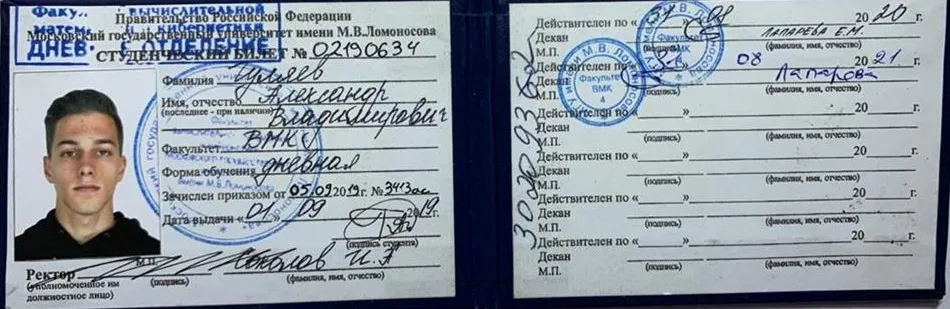 Факу
ВЫЧИСЛИТЕЛЬНОЙ
матем
и кибернетики
ДНЕВ
ОТДЕЛЕНИЕ
Правительство Российской Федерации
Московский государственный университет имени М.В.Ломоносова
СТУДЕНЧЕСКИЙ БИЛЕТ № 02190634
Фамилия Гуляев
Имя, отчество Александр
(последнее - при наличии) Владимирович
Факультет ВМК
Форма обучения дневная
Зачислен приказом от 05.09 2019г. № 3413ас
Дата выдачи « 01 » 09 2019г.
(подпись студента)
М.П.
Ректор Соколов И.А
(уполномоченное им должностное лицо)
(подпись) (фамилия, имя, отчество)
Действителен по « 31 » 08 20 20 г.
Декан Лапарева Е.М.
М.П. (подпись) (фамилия, имя, отчество)
Действителен по « 08 20 21 г.
Декан
М.П. (подпись) (фамилия, имя, отчество)
Действителен по « » 20 г.
Декан
М.П. (подпись) (фамилия, имя, отчество)
Действителен по « » 20 г.
Декан
М.П. (подпись) (фамилия, имя, отчество)
Действителен по « » 20 г.
Декан
М.П. (подпись) (фамилия, имя, отчество)
Действителен по « » 20 г.
Декан
М.П. (подпись) (фамилия, имя, отчество)
Факультет
ВМК
4